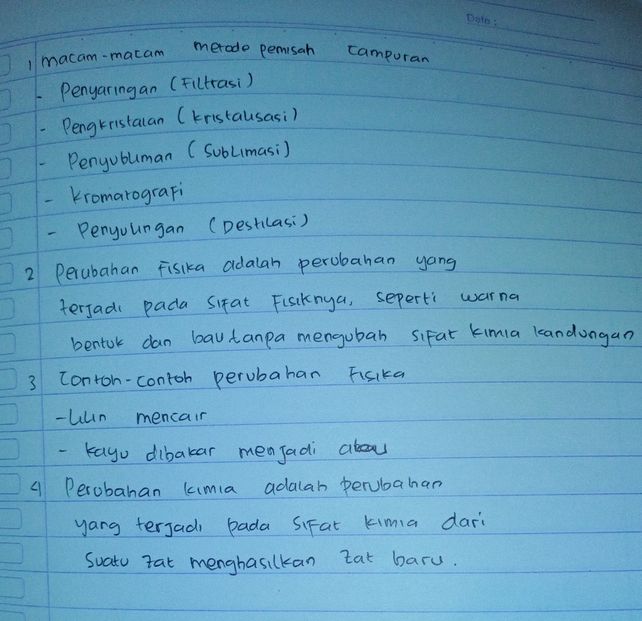 Date :
1 macam-macam metode pemisah campuran
- Penyaringan (Filtrasi)
- Pengkristalan (kristalisasi)
- Penyubliman (Sublimasi)
- kromatografi
- Penyulingan (Destilasi)
2 Perubahan Fisika adalah perubahan yang
terjadi pada sifat Fisiknya, seperti warna
bentuk dan bau tanpa mengubah sifat kimia kandungan
3 Contoh-contoh perubahan Fisika
- Lilin mencair
- kayu dibakar menjadi abu
4 Perubahan kimia adalah perubahan
yang terjadi pada sifat kimia dari
suatu zat menghasilkan zat baru.